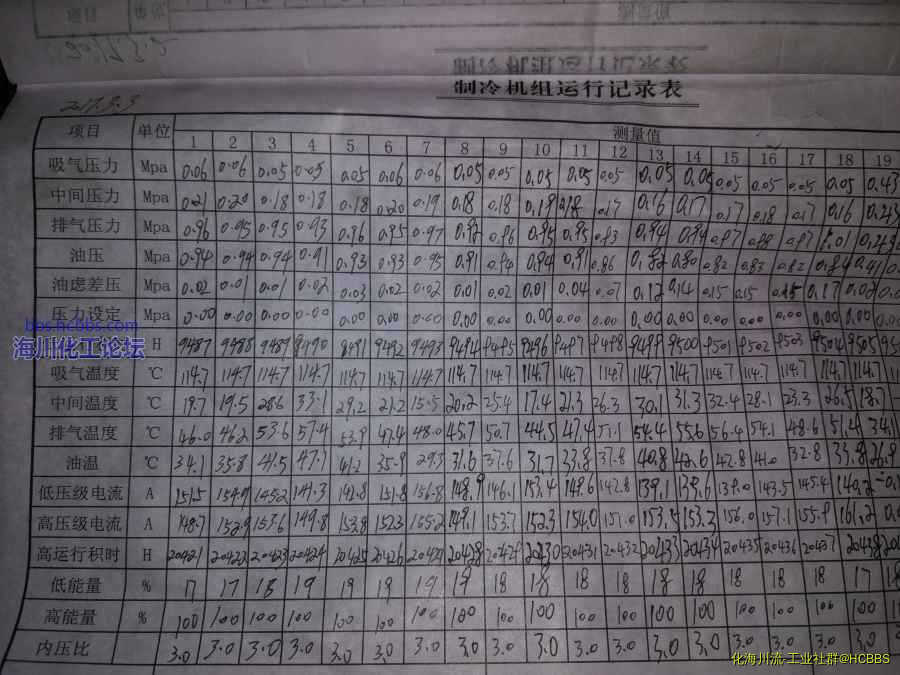 2017.3.2
制冷机组运行记录表
2017.3.3
项目 单位 测量值
1 2 3 4 5 6 7 8 9 10 11 12 13 14 15 16 17 18 19
吸气压力 Mpa 0.06 0.06 0.05 0.05 0.05 0.06 0.06 0.05 0.05 0.05 0.05 0.05 0.05 0.05 0.05 0.05 0.05 0.05 0.43
中间压力 Mpa 0.21 0.20 0.18 0.18 0.18 0.20 0.19 0.18 0.18 0.19 0.18 0.17 0.16 0.17 0.17 0.18 0.17 0.16 0.43
排气压力 Mpa 0.96 0.95 0.95 0.93 0.96 0.95 0.97 0.92 0.96 0.95 0.95 0.93 0.94 0.94 0.97 0.98 0.97 1.01
油压 Mpa 0.94 0.94 0.94 0.91 0.93 0.93 0.95 0.91 0.94 0.94 0.91 0.86 0.82 0.80 0.82 0.83 0.82 0.84 0.41
油虑差压 Mpa 0.02 0.01 0.01 0.02 0.03 0.02 0.02 0.01 0.02 0.01 0.04 0.07 0.12 0.14 0.15 0.15 0.15 0.17 0.02
压力设定 Mpa 0.00 0.00 0.00 0.00 0.00 0.00 0.00 0.00 0.00 0.00 0.00 0.00 0.00 0.00 0.00 0.00 0.00 0.00 0.00
H 9487 9488 9489 9490 9491 9492 9493 9494 9495 9496 9497 9498 9499 9500 9501 9502 9503 9504 9505
吸气温度 ℃ 114.7 114.7 114.7 114.7 114.7 114.7 114.7 114.7 114.7 114.7 114.7 114.7 114.7 114.7 114.7 114.7 114.7 114.7 114.7
中间温度 ℃ 19.7 19.5 28.6 33.1 29.2 21.2 15.5 20.2 25.4 17.4 21.3 26.3 30.1 31.3 32.4 28.1 23.3 26.5 18.7
排气温度 ℃ 46.0 46.2 53.6 57.4 53.9 47.4 48.0 45.7 50.7 44.5 47.4 51.1 54.4 55.6 56.4 54.1 48.6 51.4 34.1
油温 ℃ 34.1 35.8 41.5 47.7 41.2 35.9 29.3 31.6 37.6 31.7 33.8 37.8 40.8 42.6 42.8 41.0 32.8 33.8 26.9
低压级电流 A 151.5 154.9 145.2 141.3 141.8 151.8 156.8 148.9 146.1 153.4 149.6 142.8 139.1 139.6 139.0 143.5 145.4 140.2
高压级电流 A 148.7 152.9 153.6 149.8 153.8 152.3 155.2 149.1 153.7 152.3 154.0 151.0 153.5 153.3 156.0 157.1 155.9 161.2
高运行积时 H 20421 20422 20423 20424 20425 20426 20427 20428 20429 20430 20431 20432 20433 20434 20435 20436 20437 20438
低能量 % 17 17 18 19 19 19 19 19 18 18 18 18 18 18 18 18 18 17 18
高能量 % 100 100 100 100 100 100 100 100 100 100 100 100 100 100 100 100 100 100 100
内压比 3.0 3.0 3.0 3.0 3.0 3.0 3.0 3.0 3.0 3.0 3.0 3.0 3.0 3.0 3.0 3.0 3.0 3.0
bbs.hcbbs.com
海川化工论坛
化海川流-工业社群@HCBBS